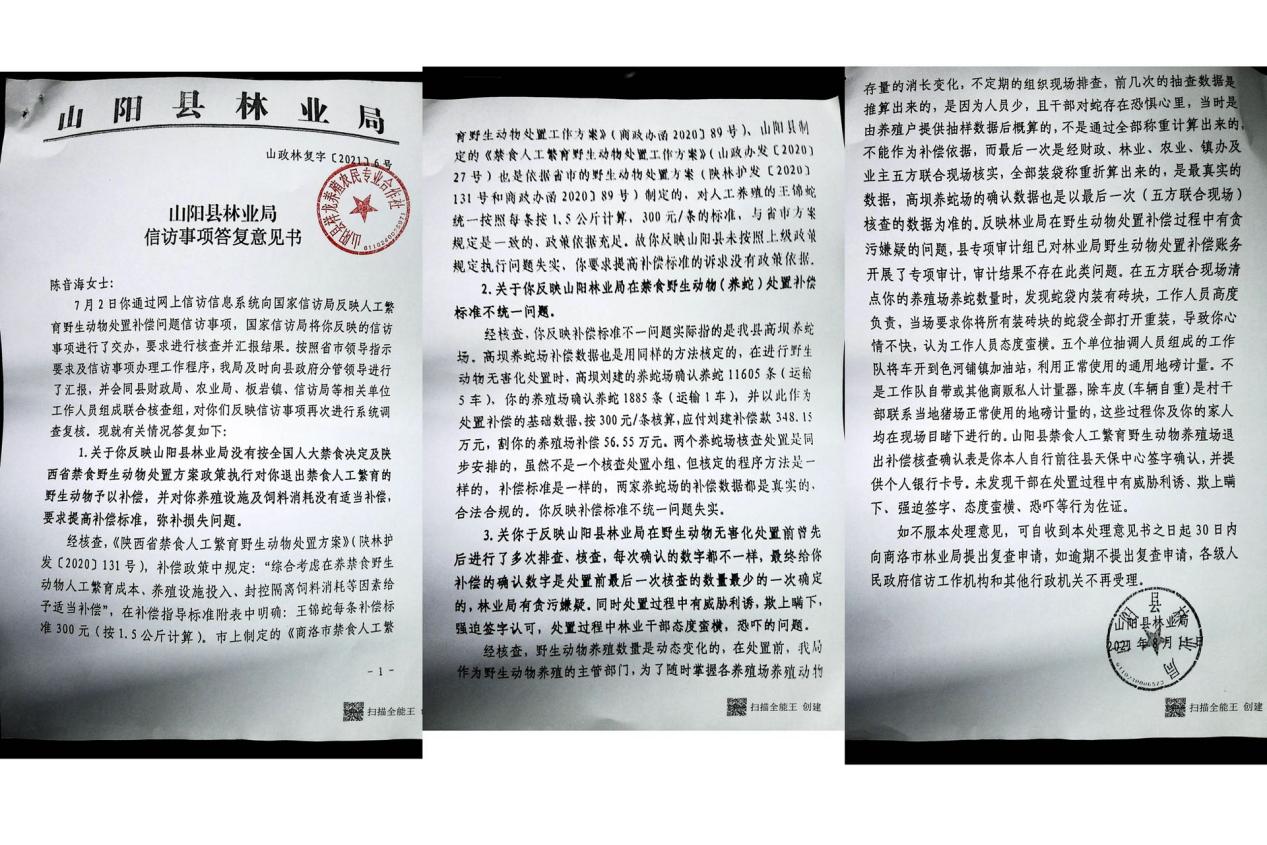 山阳县林业局
山政林复字〔2021〕6号
山阳县林业局
信访事项答复意见书
陈音海女士：
7月2日你通过网上信访信息系统向国家信访局反映人工繁
育野生动物处置补偿问题信访事项，国家信访局将你反映的信访
事项进行了交办，要求进行核查并汇报结果。按照省市领导指示
要求及信访事项办理工作程序，我局及时向县政府分管领导进行
了汇报，并会同县财政局、农业局、板岩镇、信访局等相关单位
工作人员组成联合核查组，对你们反映信访事项再次进行系统调
查复核。现就有关情况答复如下：
1.关于你反映山阳县林业局没有按全国人大禁食决定及陕
西省禁食野生动物处置方案政策执行对你退出禁食人工繁育的
野生动物予以补偿，并对你养殖设施及饲料消耗没有适当补偿，
要求提高补偿标准，弥补损失问题。
经核查，《陕西省禁食人工繁育野生动物处置方案》（陕林护
发〔2020〕131号），补偿政策中规定：“综合考虑在养禁食野生
动物人工繁育成本、养殖设施投入、封控隔离饲料消耗等因素给
予适当补偿”，在补偿指导标准附表中明确：王锦蛇每条补偿标
准300元（按1.5公斤计算）。市上制定的《商洛市禁食人工繁
-1-
扫描全能王
育野生动物处置工作方案》（商政办函2020〕89号）、山阳县制
定的《禁食人工繁育野生动物处置工作方案》（山政办发〔2020〕
27号）也是依据省市的野生动物处置方案（陕林护发〔2020〕
131号和商政办函2020〕89号）制定的，对人工养殖的王锦蛇
统一按照每条按1.5公斤计算，300元/条的标准，与省市方案
规定是一致的、政策依据充足。故你反映山阳县未按照上级政策
规定执行问题失实、你要求提高补偿标准的诉求没有政策依据。
2.关于你反映山阳林业局在禁食野生动物（养蛇）处置补偿
标准不统一问题。
经核查、你反映补偿标准不一问题实际指的是我县高坝养蛇
场。高坝养蛇场补偿数据也是用同样的方法核定的，在进行野生
动物无害化处置时、高坝刘建的养蛇场确认养蛇11605条（运输
5车），你的养殖场确认养蛇1885条（运输1车），并以此作为
处置补偿的基础数据，按300元/条核算，应付刘建补偿款348.15
万元，割你的养殖场补偿56.55万元。两个养蛇场核查处置是同
步安排的，虽然不是一个核查处置小组、但核定的程序方法是一
样的，补偿标准是一样的，两家养蛇场的补偿数据都是真实的、
合法合规的。你反映补偿标准不统一问题失实。
3.关你于反映山阳县林业局在野生动物无害化处置前曾先
后进行了多次排查、核查，每次确认的数字都不一样，最终给你
补偿的确认数字是处置前最后一次核查的数量最少的一次确定
的，林业局有贪污嫌疑。同时处置过程中有威胁利诱，欺上瞒下，
强迫签字认可，处置过程中林业干部态度蛮横，恐吓的问题。
经核查，野生动物养殖数量是动态变化的，在处置前，我局
作为野生动物养殖的主管部门，为了随时掌握各养殖场养殖动物
扫描全能王 创建
存量的消长变化，不定期的组织现场排查，前几次的抽查数据是
推算出来的，是因为人员少，且干部对蛇存在恐惧心里，当时是
由养殖户提供抽样数据后概算的，不是通过全部称重计算出来的，
不能作为补偿依据，而最后一次是经财政、林业、农业、镇办及
业主五方联合现场核实，全部装袋称重折算出来的，是最真实的
数据，高坝养蛇场的确认数据也是以最后一次（五方联合现场）
核查的数据为准的。反映林业局在野生动物处置补偿过程中有贪
污嫌疑的问题，县专项审计组已对林业局野生动物处置补偿账务
开展了专项审计，审计结果不存在此类问题。在五方联合现场清
点你的养殖场养蛇数量时，发现蛇袋内装有砖块，工作人员高度
负责，当场要求你将所有装砖块的蛇袋全部打开重装，导致你心
情不快，认为工作人员态度蛮横。五个单位抽调人员组成的工作
队将车开到色河铺镇加油站，利用正常使用的通用地磅计量。不
是工作队自带或其他商贩私人计量器，除车皮(车辆自重)是村干
部联系当地猪场正常使用的地磅计量的，这些过程你及你的家人
均在现场目睹下进行的。山阳县禁食人工繁育野生动物养殖场退
出补偿核查确认表是你本人自行前往县天保中心签字确认，并提
供个人银行卡号。未发现干部在处置过程中有威胁利诱、欺上瞒
下、强迫签字、态度蛮横、恐吓等行为佐证。
如不服本处理意见，可自收到本处理意见书之日起30日内
向商洛市林业局提出复查申请，如逾期不提出复查申请，各级人
民政府信访工作机构和其他行政机关不再受理。
山阳县林业局
2021年8月
扫描全能王 创建